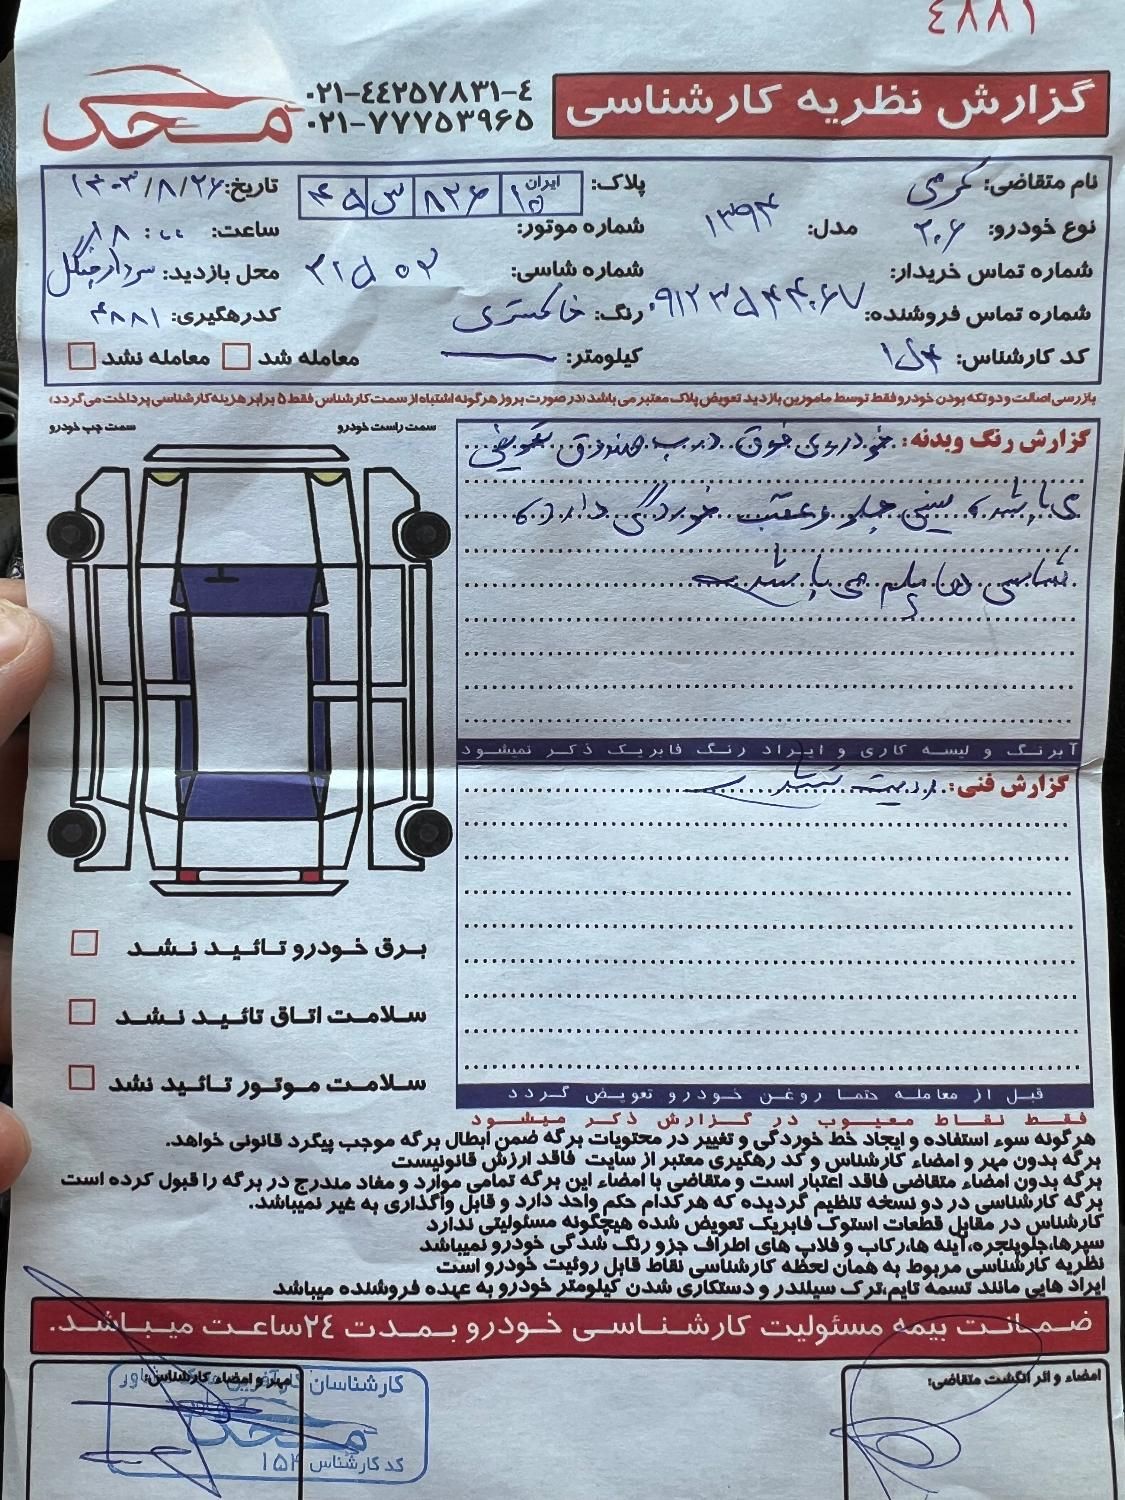 ٤٨٨١
گزارش نظریه کارشناسی
۰۲۱-٤٤۲۵۷۸۳۱-٤
۰۲۱-۷۷۷۵۳۹۶۵
محک
نام متقاضی: کرمی
پلاک: ایران ۱۰ ۸۲۶ س ۴۵
تاریخ: ۱۴۰۳/۸/۲۶
نوع خودرو: ۲۰۶
مدل: ۱۳۹۴
شماره موتور:
ساعت: ۱۸:۰۰
شماره تماس خریدار:
شماره شاسی: ۳۱۵۰۲
محل بازدید: سردار جنگل
شماره تماس فروشنده: ۰۹۱۲۳۵۴۴۰۶۷
رنگ: خاکستری
کدرهگیری: ۴۸۸۱
کد کارشناس: ۱۵۴
کیلومتر:
معامله شد
معامله نشد
بازرسی اصالت و دو تکه بودن خودرو فقط توسط مامورین بازدید تعویض پلاک معتبر می باشد (در صورت بروز هرگونه اشتباه از سمت کارشناس فقط ۵ برابر هزینه کارشناسی پرداخت می گردد)
سمت راست خودرو
سمت چپ خودرو
گزارش رنگ وبدنه: خودروی فوق درب صندوق تعویض
می باشد، سینی جلو و عقب خوردگی دارد،
شاسی ها پلم می باشد
آبرنگ و لیسه کاری و ایراد رنگ فابریک ذکر نمیشود
گزارش فنی: رویت نشد
برق خودرو تائید نشد
سلامت اتاق تائید نشد
سلامت موتور تائید نشد
قبل از معامله حتما روغن خودرو تعویض گردد
فقط نقاط معیوب در گزارش ذکر میشود
هرگونه سوء استفاده و ایجاد خط خوردگی و تغییر در محتویات برگه ضمن ابطال برگه موجب پیگرد قانونی خواهد.
برگه بدون مهر و امضاء کارشناس و کد رهگیری معتبر از سایت فاقد ارزش قانونیست
برگه بدون امضاء متقاضی فاقد اعتبار است و متقاضی با امضاء این برگه تمامی موارد و مفاد مندرج در برگه را قبول کرده است
برگه کارشناسی در دو نسخه تنظیم گردیده که هرکدام حکم واحد دارد و قابل واگذاری به غیر نمیباشد.
کارشناس در مقابل قطعات استوک فابریک تعویض شده هیچگونه مسئولیتی ندارد
سپرها،جلوپنجره،آینه ها،رکاب و فلاپ های اطراف جزو رنگ شدگی خودرو نمیباشد
نظریه کارشناسی مربوط به همان لحظه کارشناسی نقاط قابل روئیت خودرو است
ایراد هایی مانند تسمه تایم،ترک سیلندر و دستکاری شدن کیلومتر خودرو به عهده فروشنده میباشد
ضمانت بیمه مسئولیت کارشناسی خودرو بمدت ۲٤ساعت میباشد.
امضاء و اثر انگشت متقاضی:
مهر و امضاء کارشناس:
کارشناسان کارآفرین محک
محک
کد کارشناس ۱۵۴